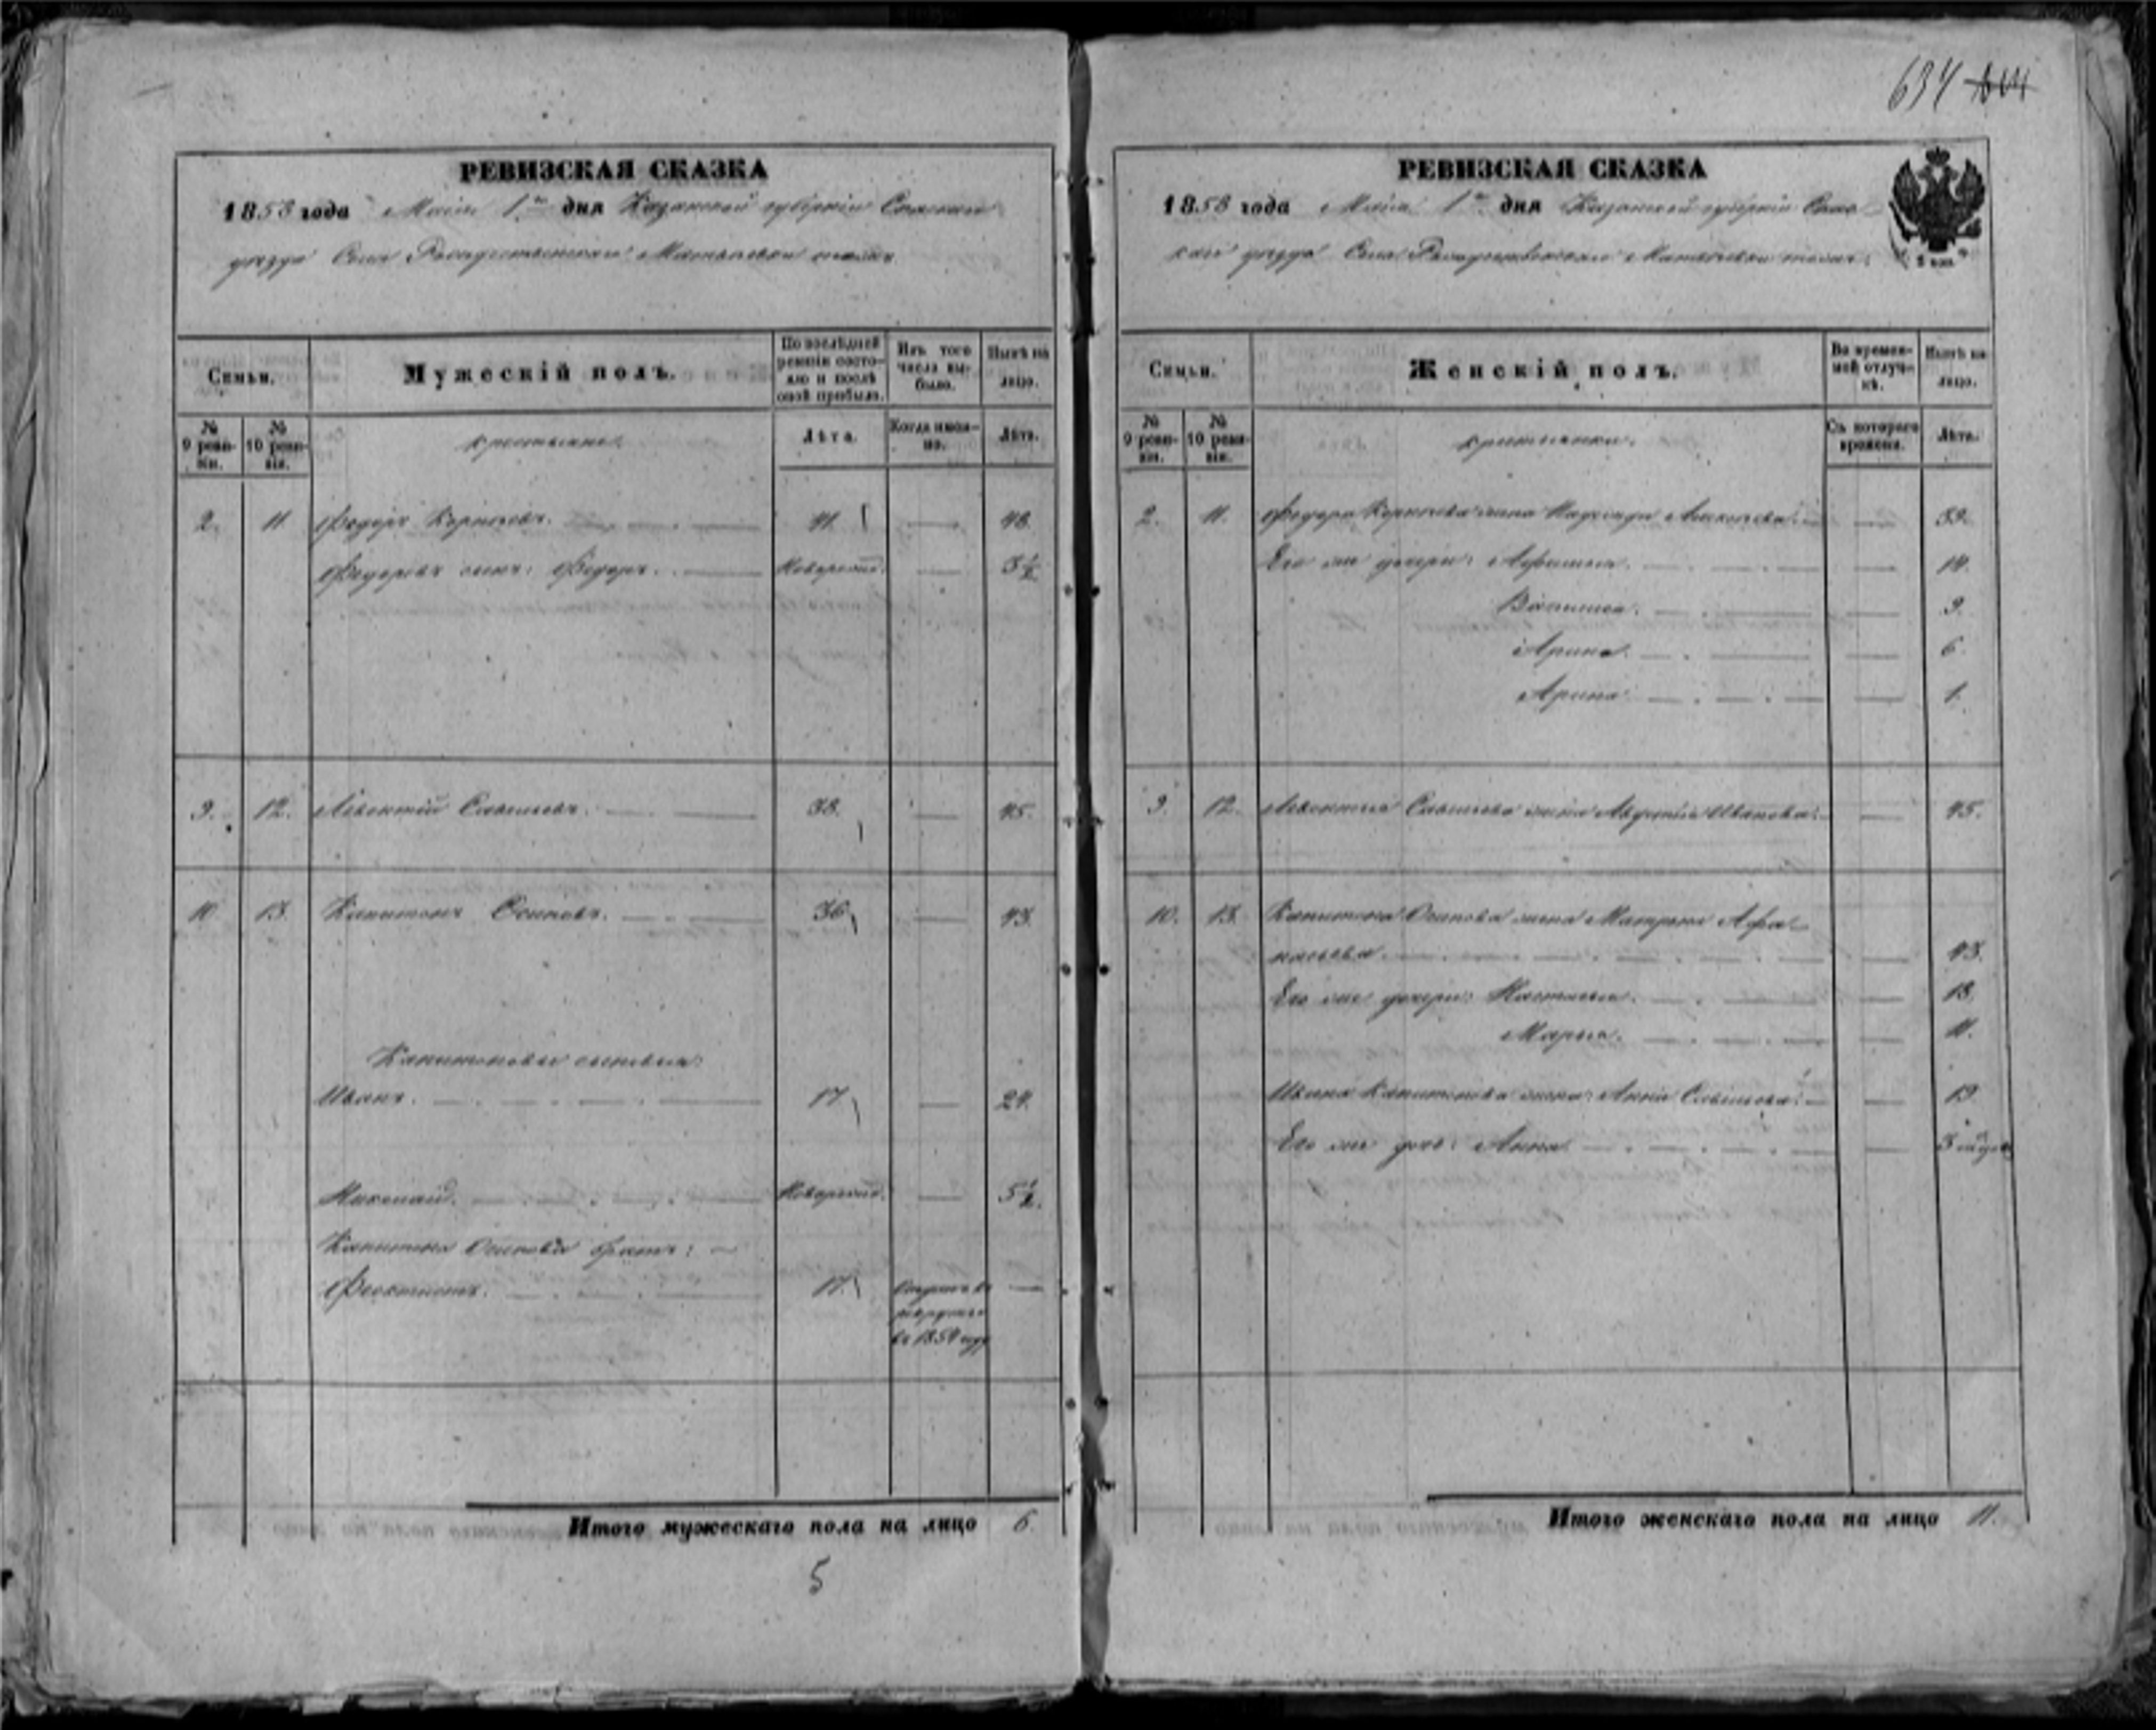 634 604
РЕВИЗСКАЯ СКАЗКА
1858 года Маія 1го дня Казанской губерніи Спаскаго
уезда Села Рождественскаго Матвеевки тожъ
Семьи.
Мужескій полъ.
По послѣдней ревизіи состояло и послѣ оной прибыло.
Изъ того числа выбыло.
Нынѣ на лицо.
№ 9 ревизіи.
№ 10 ревизіи.
Крестьяне.
Лѣта.
Когда именно.
Лѣта.
2. 11. Федоръ 41. — 48.
Федоровъ сынъ: Федоръ. Новорожд. — 3½
9. 12. Левонтій Савельевъ. 38. — 45.
10. 13. Капитонъ Осиповъ. 36. — 43.
Капитоновы сыновья:
Иванъ. 17. — 24.
Николай. Новорожд. — 5½.
Капитона Осипова братъ:
Феоктистъ. 17. —
въ рекруты
въ 1854 году
Итого мужескаго пола на лицо 6.
5
РЕВИЗСКАЯ СКАЗКА
1858 года Маія 1го дня Казанской губерніи Спас
каго уезда Села Рождественскаго Матвеевки тожъ.
Семьи.
Женскій полъ.
Во временной отлучкѣ.
Нынѣ на лицо.
№ 9 ревизіи.
№ 10 ревизіи.
Крестьянки.
Съ котораго времени.
Лѣта.
2. 11. Федора жена — 39.
Его же дочери: — 14.
Васимса. — 9.
Арина. — 6.
Арина — 1.
9. 12. Левонтья Савельева жена Авдотья Иванова. — 45.
10. 13. Капитона Осипова жена Матрена Афа-
насьева. — 43.
Его же дочери: Настасья. — 18.
Марья. — 11.
Ивана Капитонова жена: Анна Савельева. — 19.
Его же дочь: Анна — 3 недель
Итого женскаго пола на лицо 11.